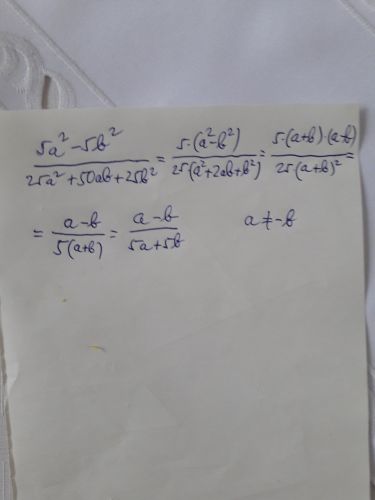 (5a² - 5b²)/(25a² + 50ab + 25b²) = (5·(a² - b²))/(25(a² + 2ab + b²)) = (5·(a+b)·(a-b))/(25·(a+b)²) =
= (a - b)/(5(a+b)) = (a - b)/(5a + 5b) a ≠ -b